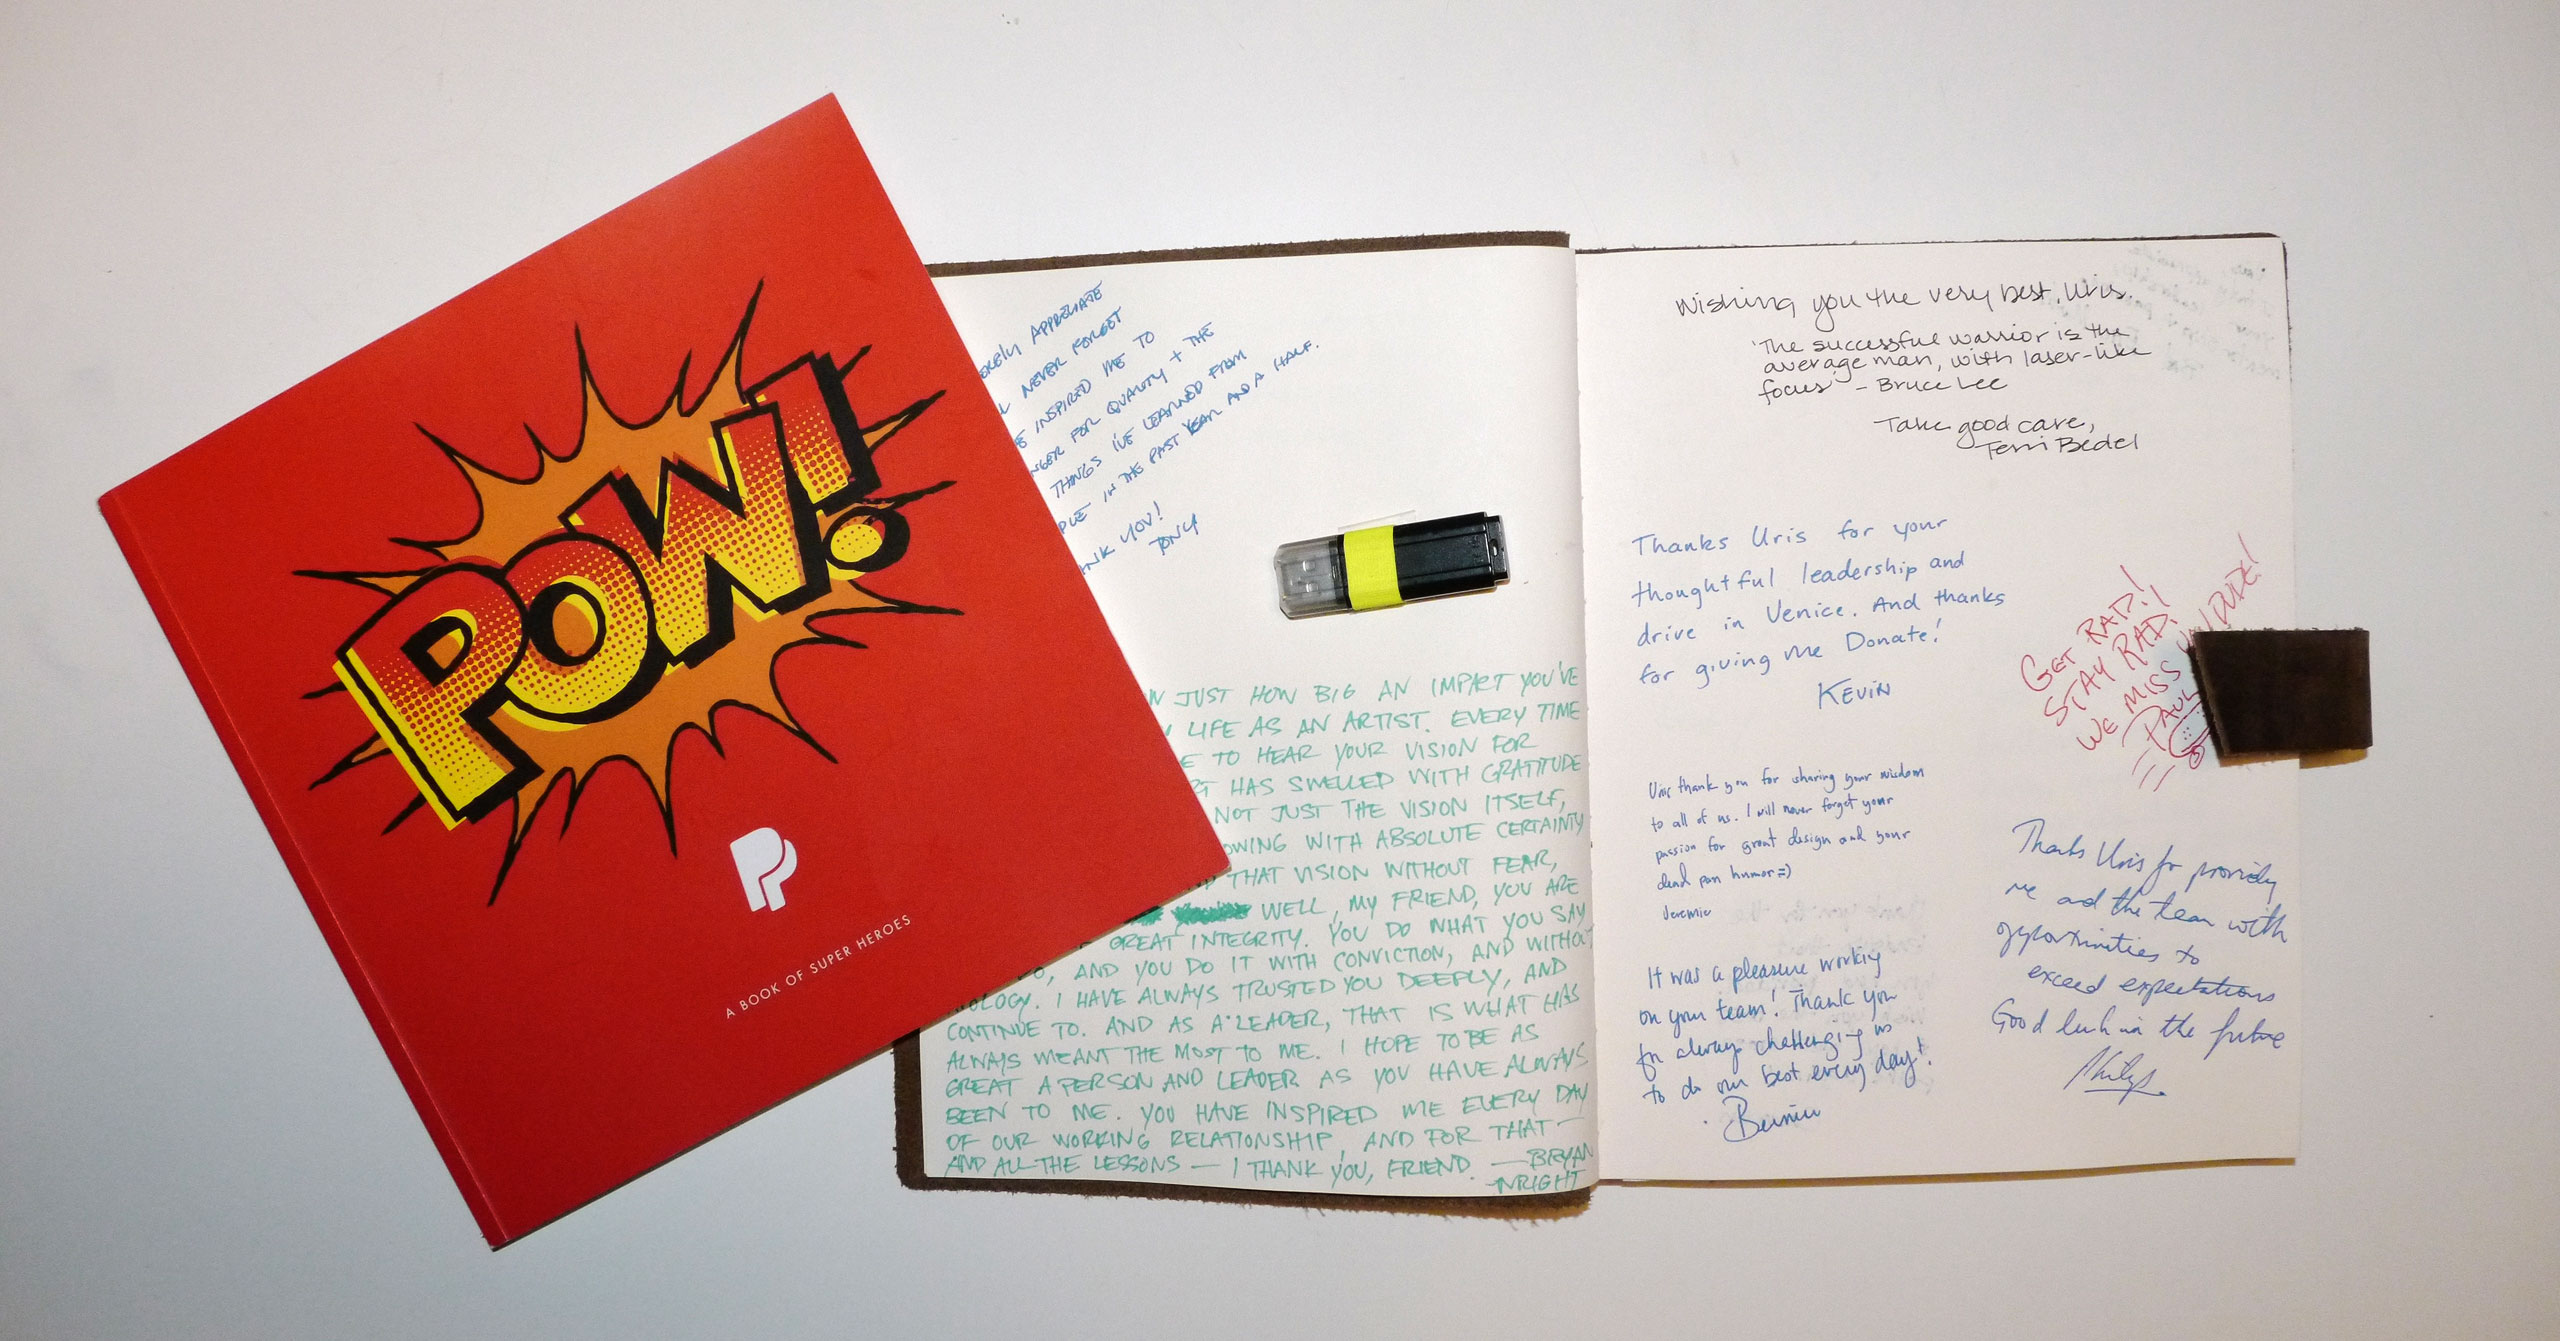 POW!
PP
A BOOK OF SUPER HEROES
APPRECIATE
NEVER FORGET
INSPIRED ME TO
FOR QUALITY + THE
THINGS I'VE LEARNED FROM
IN THE PAST YEAR AND A HALF.
YOU!
TONY
JUST HOW BIG AN IMPACT YOU'VE
LIFE AS AN ARTIST. EVERY TIME
TO HEAR YOUR VISION FOR
HAS SWELLED WITH GRATITUDE
NOT JUST THE VISION ITSELF,
OWING WITH ABSOLUTE CERTAINTY
THAT VISION WITHOUT FEAR,
WELL, MY FRIEND, YOU ARE
GREAT INTEGRITY. YOU DO WHAT YOU SAY
O, AND YOU DO IT WITH CONVICTION, AND WITHOUT
OLOGY. I HAVE ALWAYS TRUSTED YOU DEEPLY, AND
CONTINUE TO. AND AS A LEADER, THAT IS WHAT HAS
ALWAYS MEANT THE MOST TO ME. I HOPE TO BE AS
GREAT A PERSON AND LEADER AS YOU HAVE ALWAYS
BEEN TO ME. YOU HAVE INSPIRED ME EVERY DAY
OF OUR WORKING RELATIONSHIP, AND FOR THAT —
AND ALL THE LESSONS — I THANK YOU, FRIEND. — BRYAN
INRIGHT
Wishing you the very best, Uris.
'The successful warrior is the
average man, with laser-like
focus' - Bruce Lee
Take good care,
Terri Bedel
Thanks Uris for your
thoughtful leadership and
drive in Venice. And thanks
for giving me Donate!
KEVIN
GET RAD!
STAY RAD!
WE MISS DUDE!
PAUL
Uris thank you for sharing your wisdom
to all of us. I will never forget your
passion for great design and your
dead pan humor =)
Jeremie
Thanks Uris for providing
me and the team with
opportunities to
exceed expectations
Good luck in the future
Philip
It was a pleasure working
on your team! Thank you
for always challenging us
to do our best every day!
Bernice